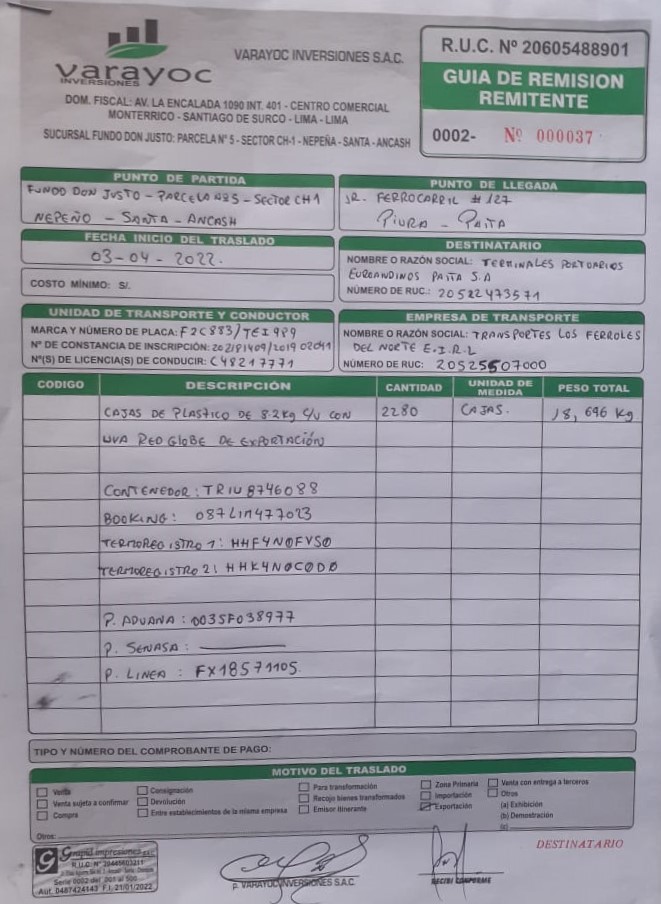 varayoc
INVERSIONES
VARAYOC INVERSIONES S.A.C.
DOM. FISCAL: AV. LA ENCALADA 1090 INT. 401 - CENTRO COMERCIAL
MONTERRICO - SANTIAGO DE SURCO - LIMA - LIMA
SUCURSAL FUNDO DON JUSTO: PARCELA Nº 5 - SECTOR CH-1 - NEPEÑA - SANTA - ANCASH
R.U.C. Nº 20605488901
GUIA DE REMISION
REMITENTE
0002- Nº 000037
PUNTO DE PARTIDA
FUNDO DON JUSTO - PARCELA Nº5 - SECTOR CH1
NEPEÑO - SANTA - ANCASH
PUNTO DE LLEGADA
JR. FERROCARRIL # 127
PIURA - PAITA
FECHA INICIO DEL TRASLADO
03-04-2022.
COSTO MÍNIMO: S/.
DESTINATARIO
NOMBRE O RAZÓN SOCIAL: TERMINALES PORTUARIOS
EUROANDINOS PAITA S.A
NÚMERO DE RUC.: 20522473571
UNIDAD DE TRANSPORTE Y CONDUCTOR
MARCA Y NÚMERO DE PLACA: F2C883/TEI989
Nº DE CONSTANCIA DE INSCRIPCIÓN:
Nº(S) DE LICENCIA(S) DE CONDUCIR: C48217771
EMPRESA DE TRANSPORTE
NOMBRE O RAZÓN SOCIAL: TRANSPORTES LOS FERROLES
DEL NORTE E.I.R.L
NÚMERO DE RUC: 20525507000
CODIGO DESCRIPCIÓN CANTIDAD UNIDAD DE MEDIDA PESO TOTAL
CAJAS DE PLASTICO DE 8.2kg C/U CON 2280 CAJAS. 18,696 Kg
UVA RED GLOBE DE EXPORTACIÓN
CONTENEDOR: TRIU 8746088
BOOKING: 087LIM477023
TERMOREGISTRO 1: HHF4N0FVS0
TERMOREGISTRO 2: HHK4N0C0D0
P. ADUANA: 0035F038977
P. SENASA:
P. LINEA: FX18571105
TIPO Y NÚMERO DEL COMPROBANTE DE PAGO:
MOTIVO DEL TRASLADO
Venta
Venta sujeta a confirmar
Compra
Consignación
Devolución
Entre establecimientos de la misma empresa
Para transformación
Recojo bienes transformados
Emisor Itinerante
Zona Primaria
Importación
Exportación
Venta con entrega a terceros
Otros
(a) Exhibición
(b) Demostración
(c)
Otros:
R.U.C. Nº 20445603211
Serie 0002 del 001 al 500
Aut. 0487424143 F.I. 21/01/2022
P. VARAYOC INVERSIONES S.A.C.
RECIBI CONFORME
DESTINATARIO